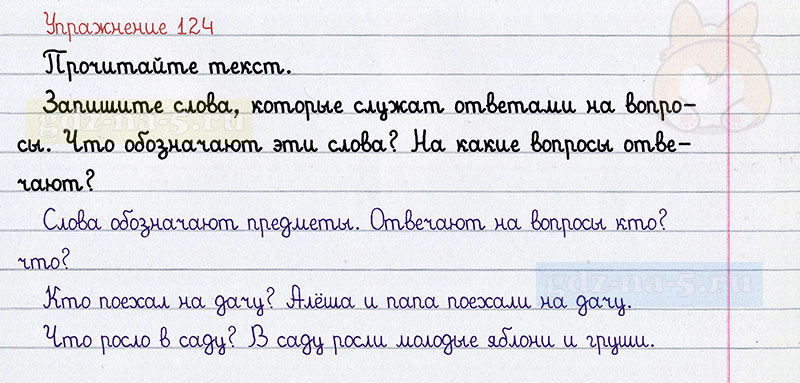 Упражнение 124
Прочитайте текст.
Запишите слова, которые служат ответами на вопро-
сы. Что обозначают эти слова? На какие вопросы отве-
чают?
Слова обозначают предметы. Отвечают на вопросы кто?
что?
gdz-na-5.ru
gdz-na-5.ru
Кто поехал на дачу? Алёша и папа поехали на дачу.
Что росло в саду? В саду росли молодые яблони и груши.